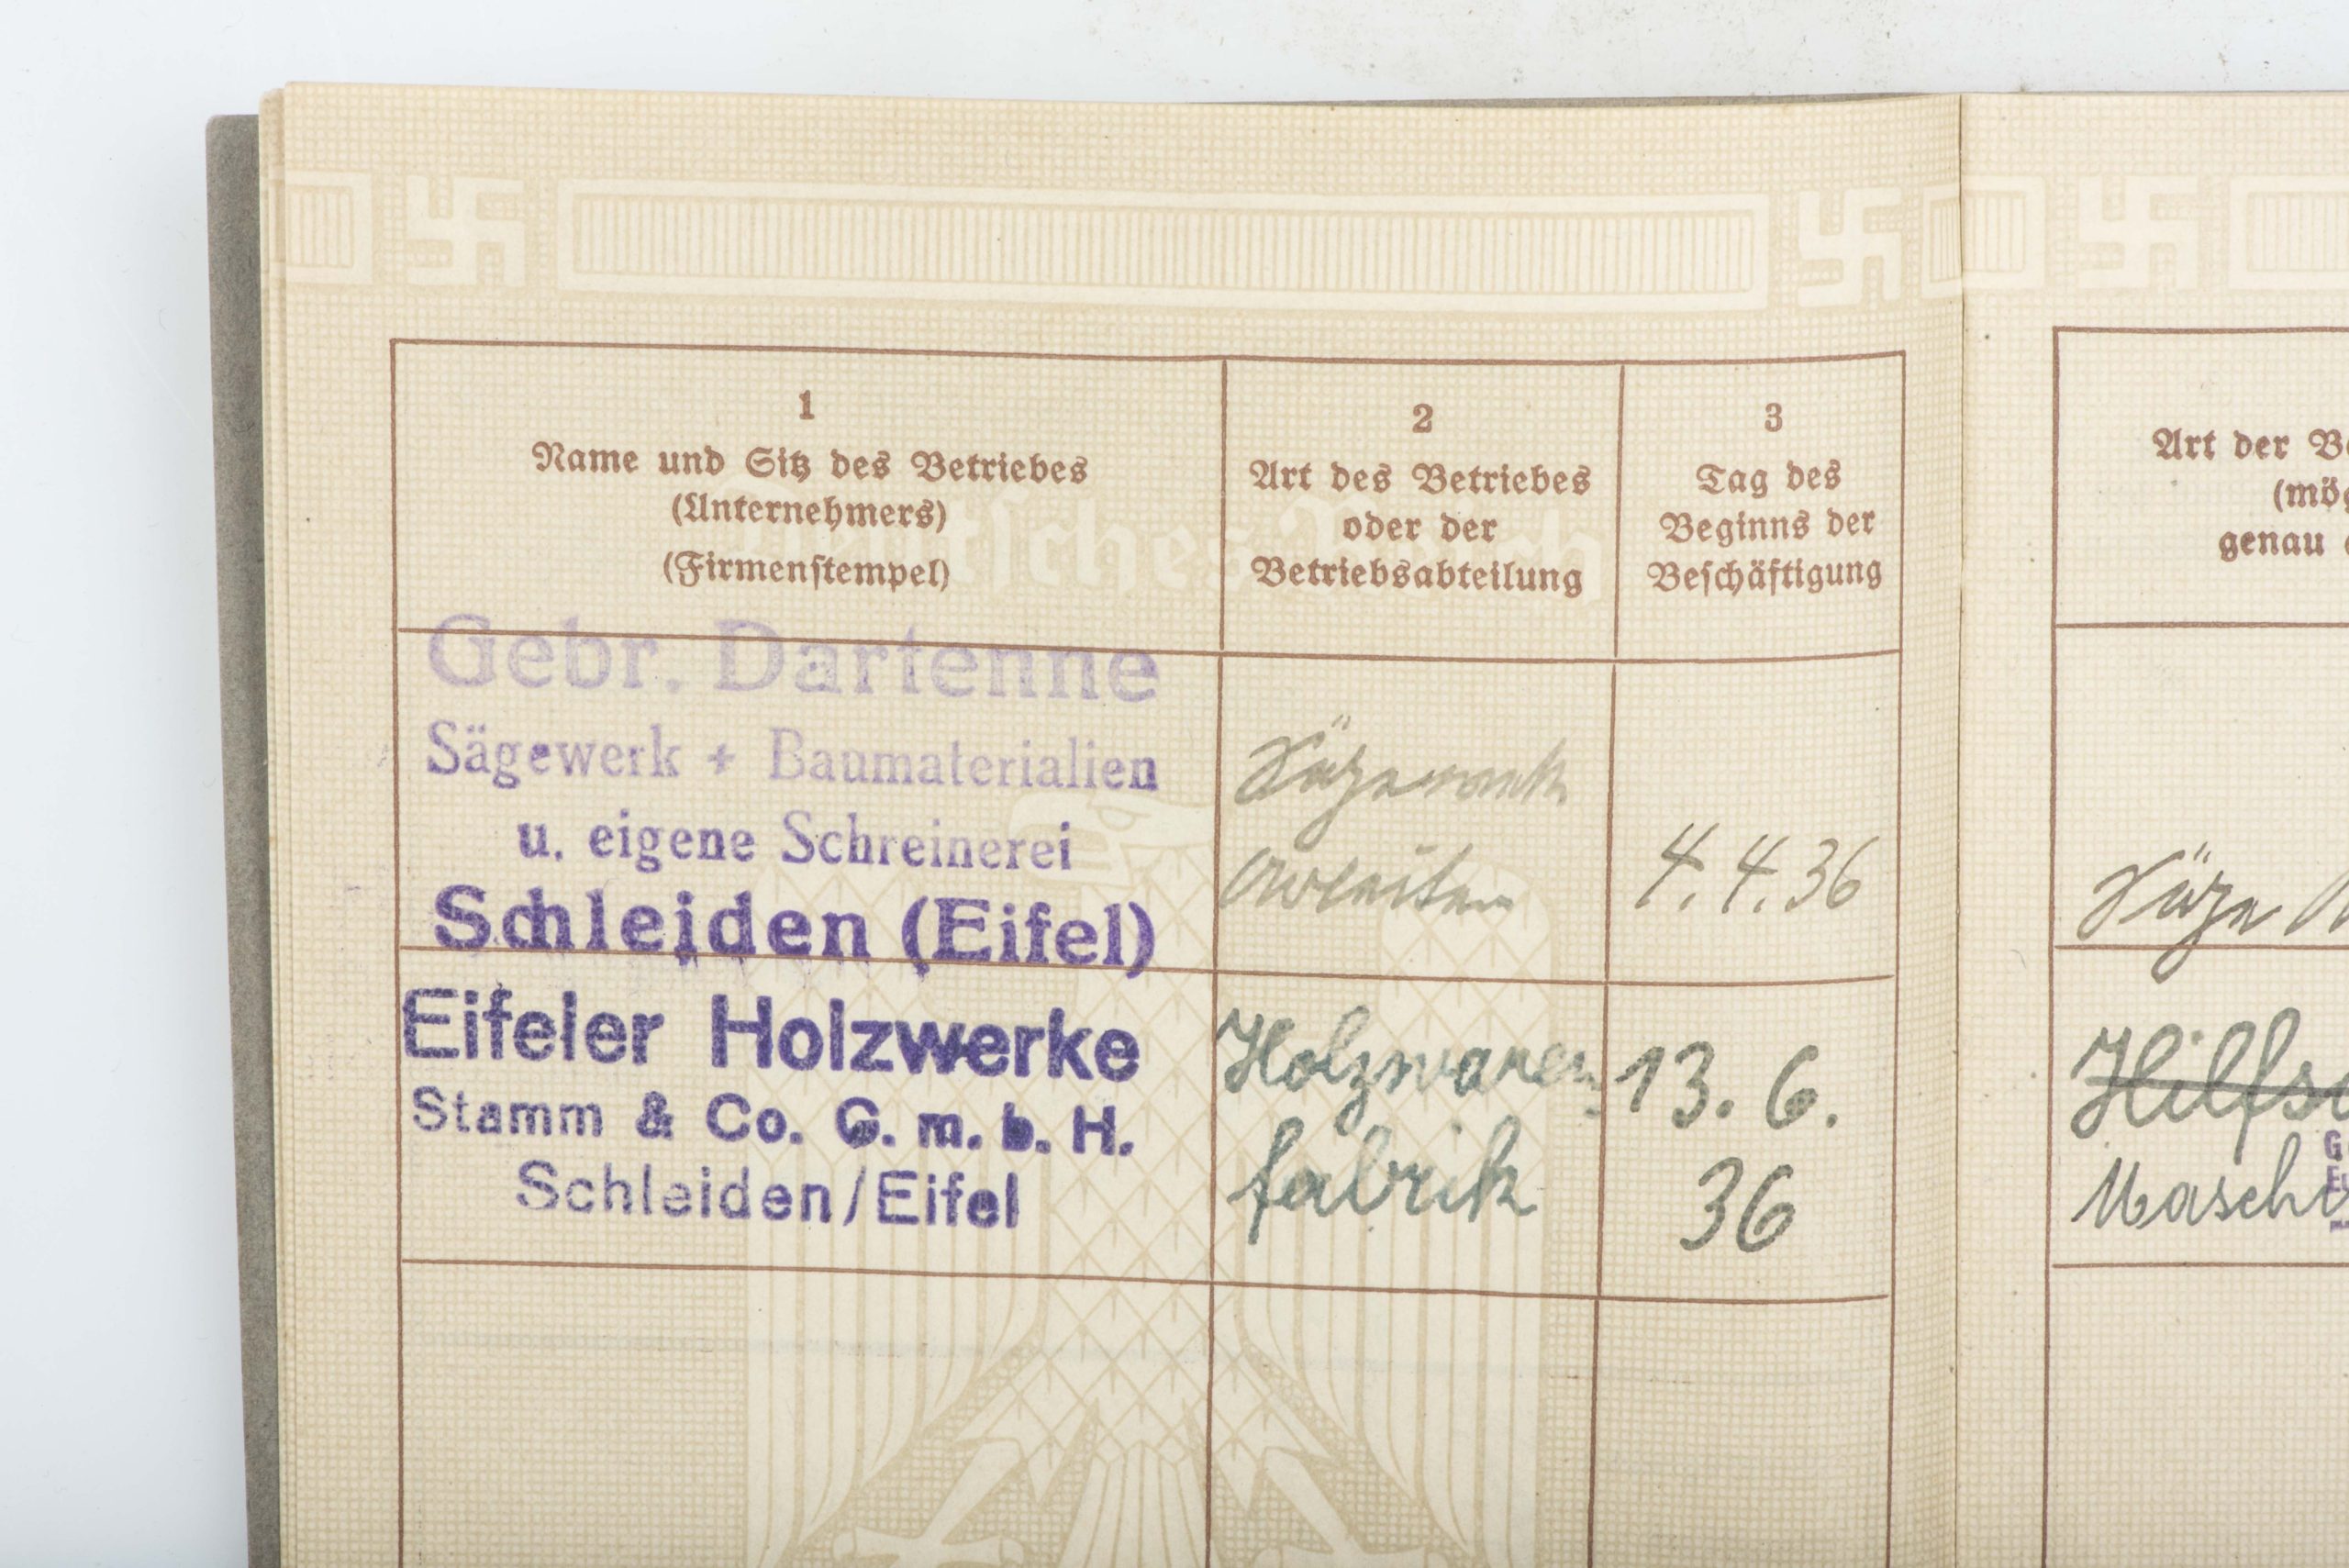 1
Name und Sitz des Betriebes
(Unternehmers)
(Firmenstempel)
2
Art des Betriebes
oder der
Betriebsabteilung
3
Tag des
Beginns der
Beschäftigung
Gebr. Dartenne
Sägewerk + Baumaterialien
u. eigene Schreinerei
Schleiden (Eifel)
Sägewerk
4.4.36
Eifeler Holzwerke
Stamm & Co. G. m. b. H.
Schleiden/Eifel
Holzwaren
fabrik
13. 6.
36
Art der
genau
Säge